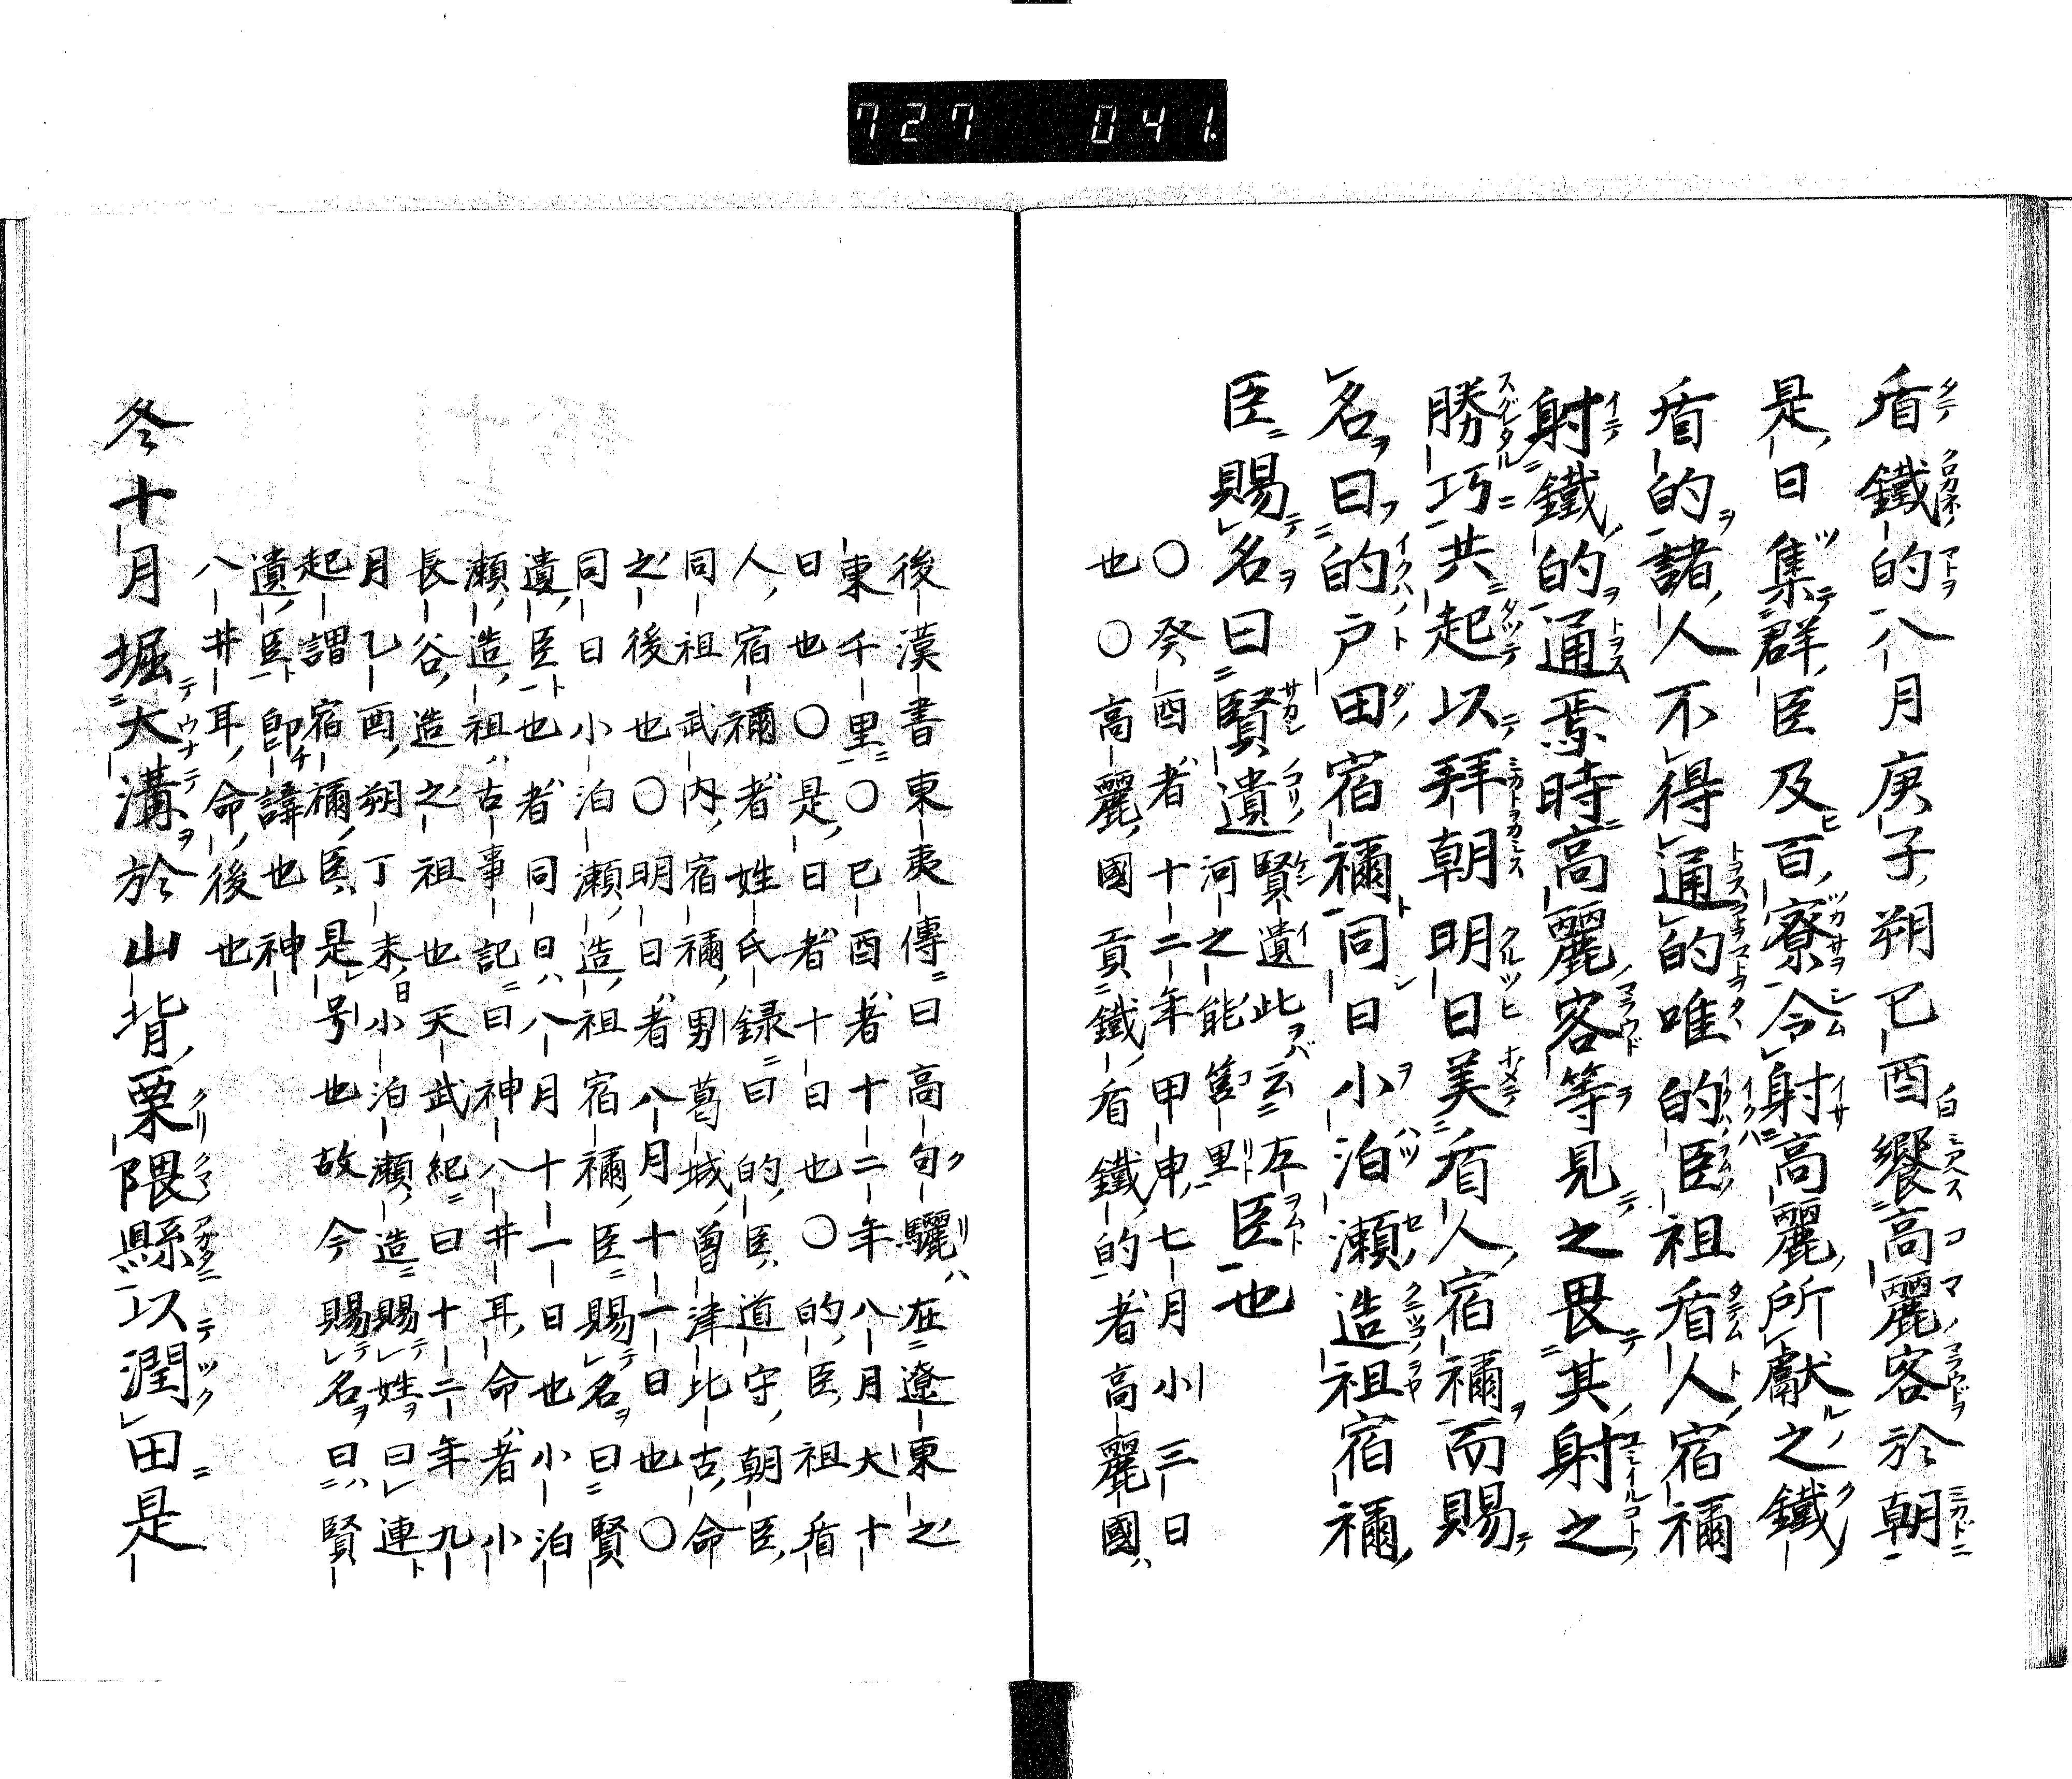 727 041.
盾鐵的八月庚子朔己酉饗高麗客於朝
是日集群臣及百寮令射高麗所獻之鐵
盾的諸人不得通的唯的臣祖盾人宿禰
射鐵的通焉時高麗客等見之畏其射之
勝巧共起以拜朝明日美盾人宿禰而賜
名曰的戸田宿禰同日小泊瀬造祖宿禰
臣賜名曰賢遺賢遺此云左河之能莒里臣也
○癸酉者十二年甲申七月小三日
也○高麗國貢鐵盾鐵的者高麗國
後漢書東夷傳曰高句驪在遼東之
東千里○己酉者十二年八月大十
日也○是日者十日也○的臣祖盾
人宿禰者姓氏録曰的臣道守朝臣
同祖武内宿禰男葛城曽津比古命
之後也○明日者八月十一日也○
同日小泊瀬造祖宿禰臣賜名曰賢
遺臣也者同日八月十一日也小泊
瀬造祖古事記曰神八井耳命者小
長谷造之祖也天武紀曰十二年九
月乙酉朔丁未日小泊瀬造賜姓曰連
起謂宿禰臣是号也故今賜名曰賢
遺臣即諱也神
八井耳命後也
冬十月堀大溝於山背栗隈縣以潤田是